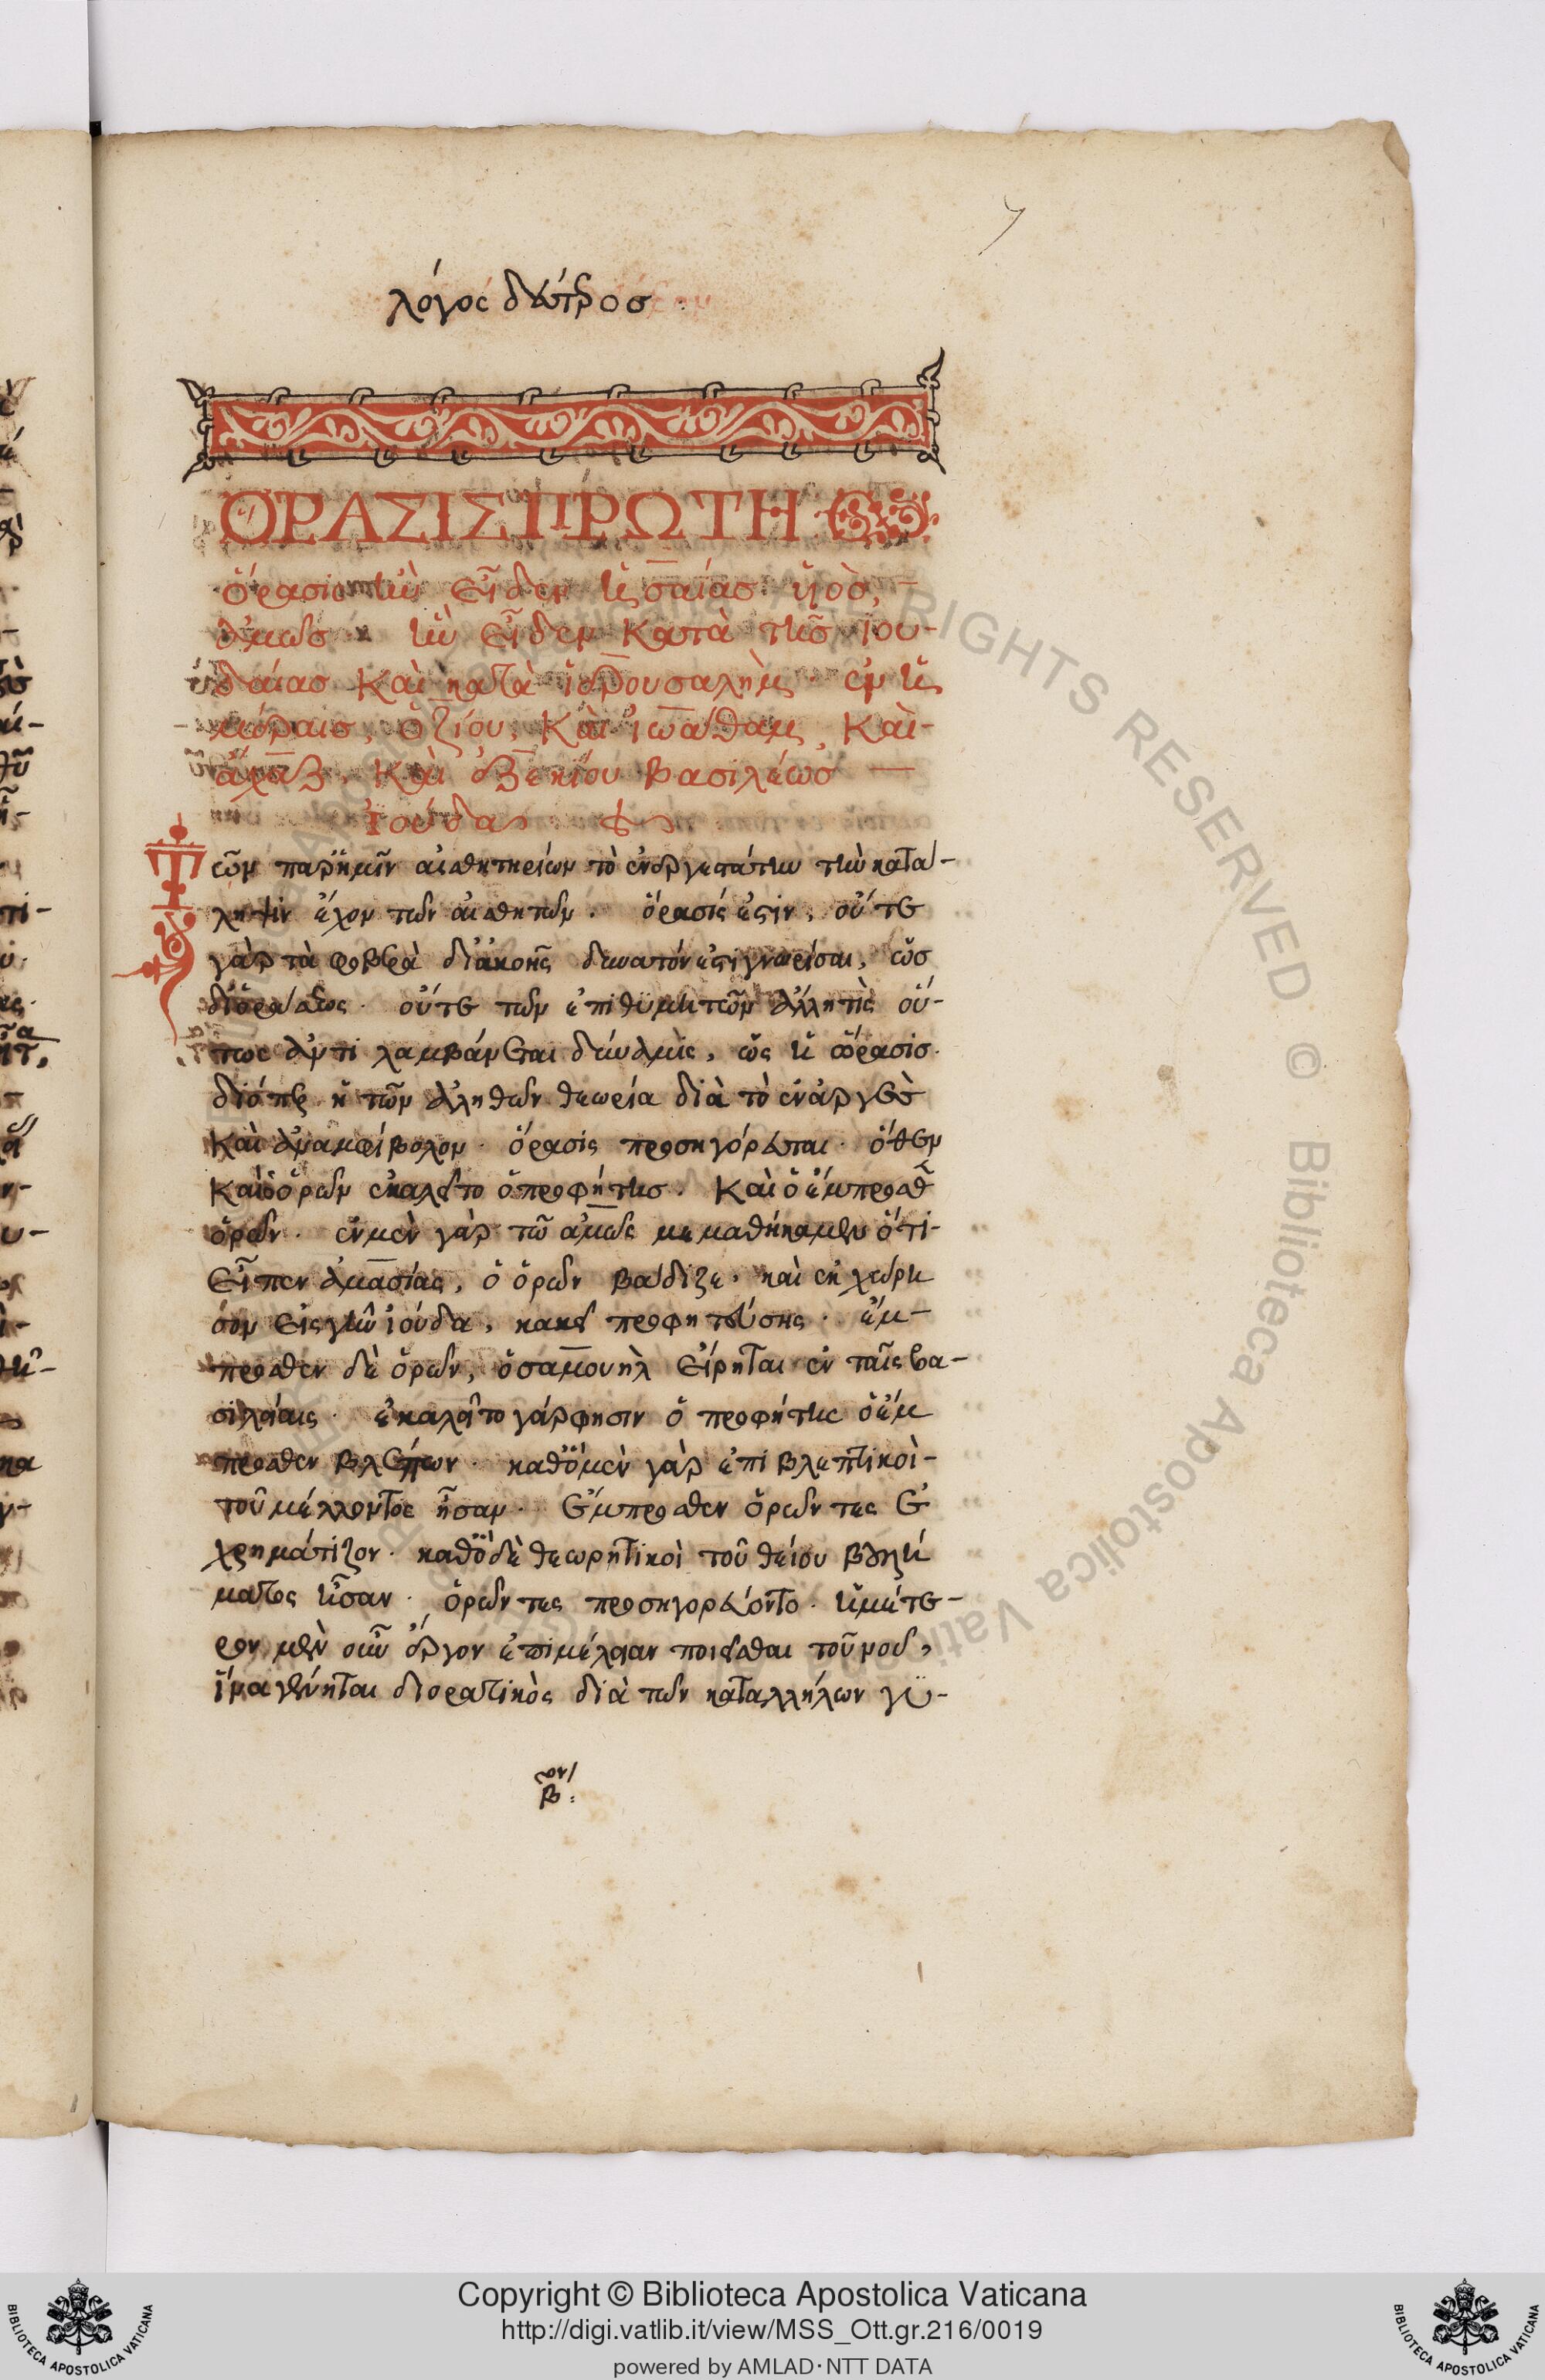 7
λόγος δεύτερος
ΟΡΑΣΙΣ ΠΡΩΤΗ
ὅρασις ἣν εἶδεν ἡσαΐας υἱὸς,
ἀμώς· ἣν εἶδεν κατὰ τῆς ιου-
δαίας καὶ κατὰ ἱερουσαλὴμ· ἐν ἡ
μέραις, ὀζίου, καὶ ἰωάθαμ, καὶ
ἄχαζ, καὶ ἐζεκίου βασιλέως
Ἰούδα
Τῶν παρ' ἡμῖν αἰσθητηρίων τὸ ἐνεργεστάτην τὴν κατά-
ληψιν ἔχον τῶν αἰσθητῶν· ὅρασίς ἐστιν, οὔτε
γὰρ τὰ φοβερὰ δι' ἀκοῆς δυνατόν ἐστι γνωρίσαι, ὡς
δι' ὁράσεως· οὔτε τῶν ἐπιθυμητῶν ἄλλη τὶς οὕ-
τως ἀντιλαμβάνεται δύναμις, ὡς ἡ ὅρασις·
διόπερ ἡ τῶν ἀληθῶν θεωρία διὰ τὸ ἐναργὲς
καὶ ἀναμφίβολον· ὅρασις προσηγόρευται· ὅθεν
καὶ ὁ ὁρῶν ἐκαλεῖτο ὁ προφήτης· καὶ ὁ ἔμπροσθεν
ὁρῶν· ἐν μὲν γὰρ τῶ ἀμὼς μεμαθήκαμεν ὅτι
εἶπεν ἀμασίας, ὁ ὁρῶν βάδιζε, καὶ ἐκχώρη
σον εἰς γῆν ἰούδα, κακεῖ προφητεύσης· ἔμ-
προσθεν δὲ ὁρῶν, ὁ σαμουὴλ εἴρηται ἐν ταῖς βα-
σιλείαις· ἐκαλεῖτο γάρ φησιν ὁ προφήτης ὁ ἔμ
προσθεν βλέπων· καθὸ μὲν γὰρ ἐπιβλεπτικοὶ
τοῦ μέλλοντος ἦσαν· ἔμπροσθεν ὁρῶντες ἐ
χρημάτιζον· καθὸ δὲ θεωρητικοὶ τοῦ θείου βουλή
ματος ἦσαν· ὁρῶντες προσηγορεύοντο· ἡμέτε-
ρον μὲν οὖν ἔργον ἐπιμέλειαν ποιεῖσθαι τοῦ νοῦ,
ἵνα γένηται διορατικὸς διὰ τῶν καταλλήλων γυ-
ον
β
Copyright © Biblioteca Apostolica Vaticana
http://digi.vatlib.it/view/MSS_Ott.gr.216/0019
powered by AMLAD·NTT DATA
BIBLIOTECA APOSTOLICA VATICANA
BIBLIOTECA APOSTOLICA VATICANA
ALL RIGHTS RESERVED © Biblioteca Apostolica Vaticana